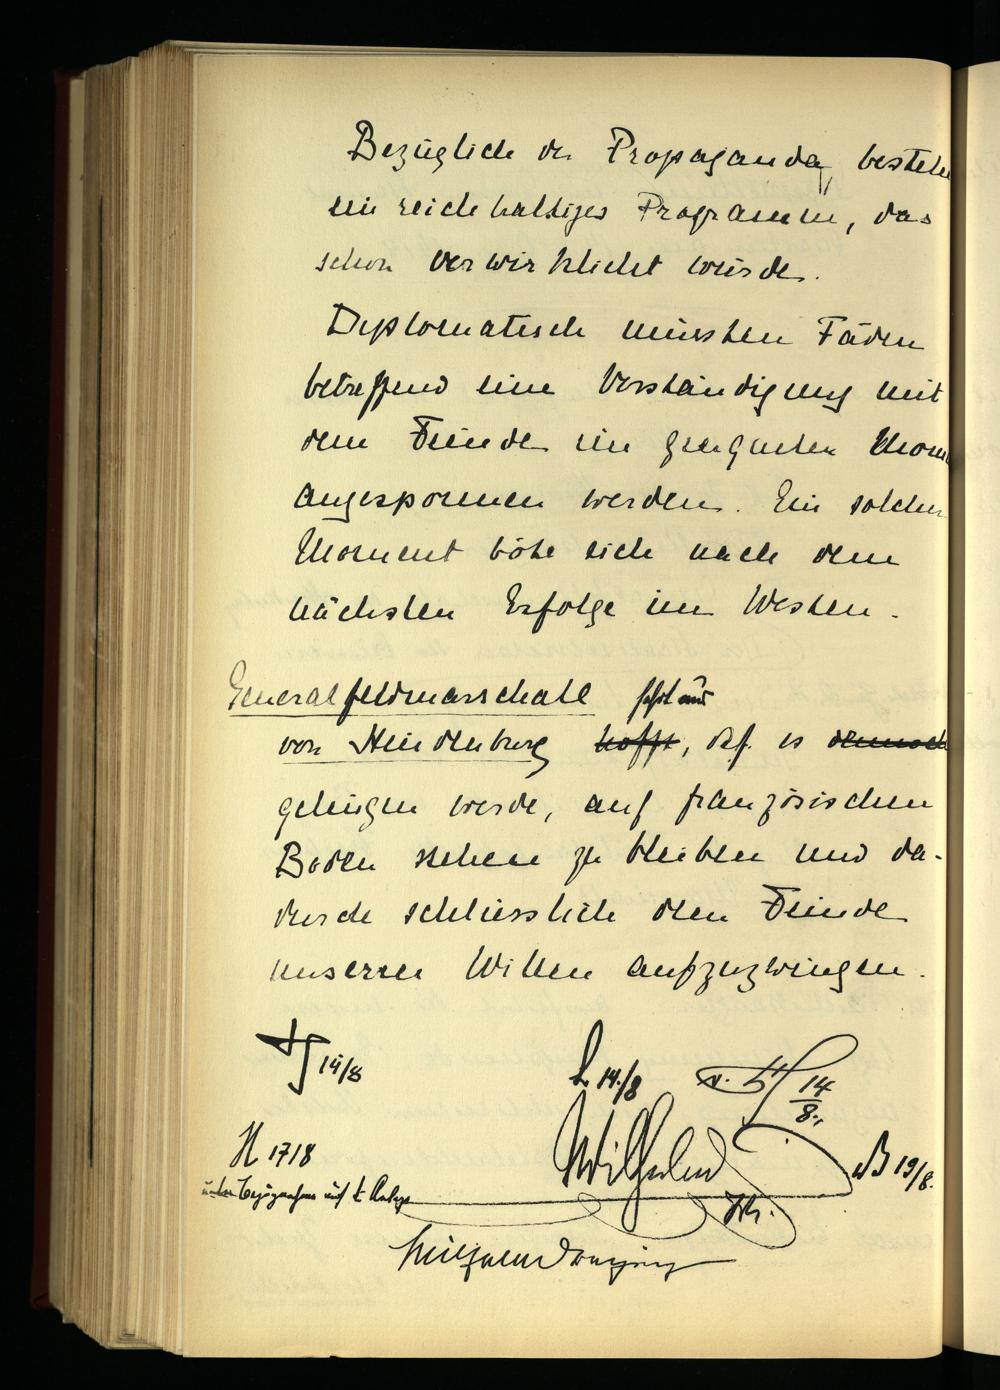 Bezüglich der Propaganda bestehe
ein reichhaltiges Programm, das
schon verwirklicht würde.
Diplomatisch müssten Fäden
betreffend eine Verständigung mit
dem Feinde im geeigneten Mom
angesponnen werden. Ein solcher
Moment böte sich nach dem
nächsten Erfolge im Westen.
Generalfeldmarschall führt aus
von Hindenburg hofft, daß es dennoch
gelingen werde, auf französischem
Boden stehen zu bleiben und da-
durch schliesslich dem Feinde
unseren Willen aufzuzwingen.
14/8
L 14/8
v. H 14/8.
H 17/8
Wilhelm
B 19/8.
unter Bezugnahme auf d. Anlage
I.R.
Wilhelm Kronprinz